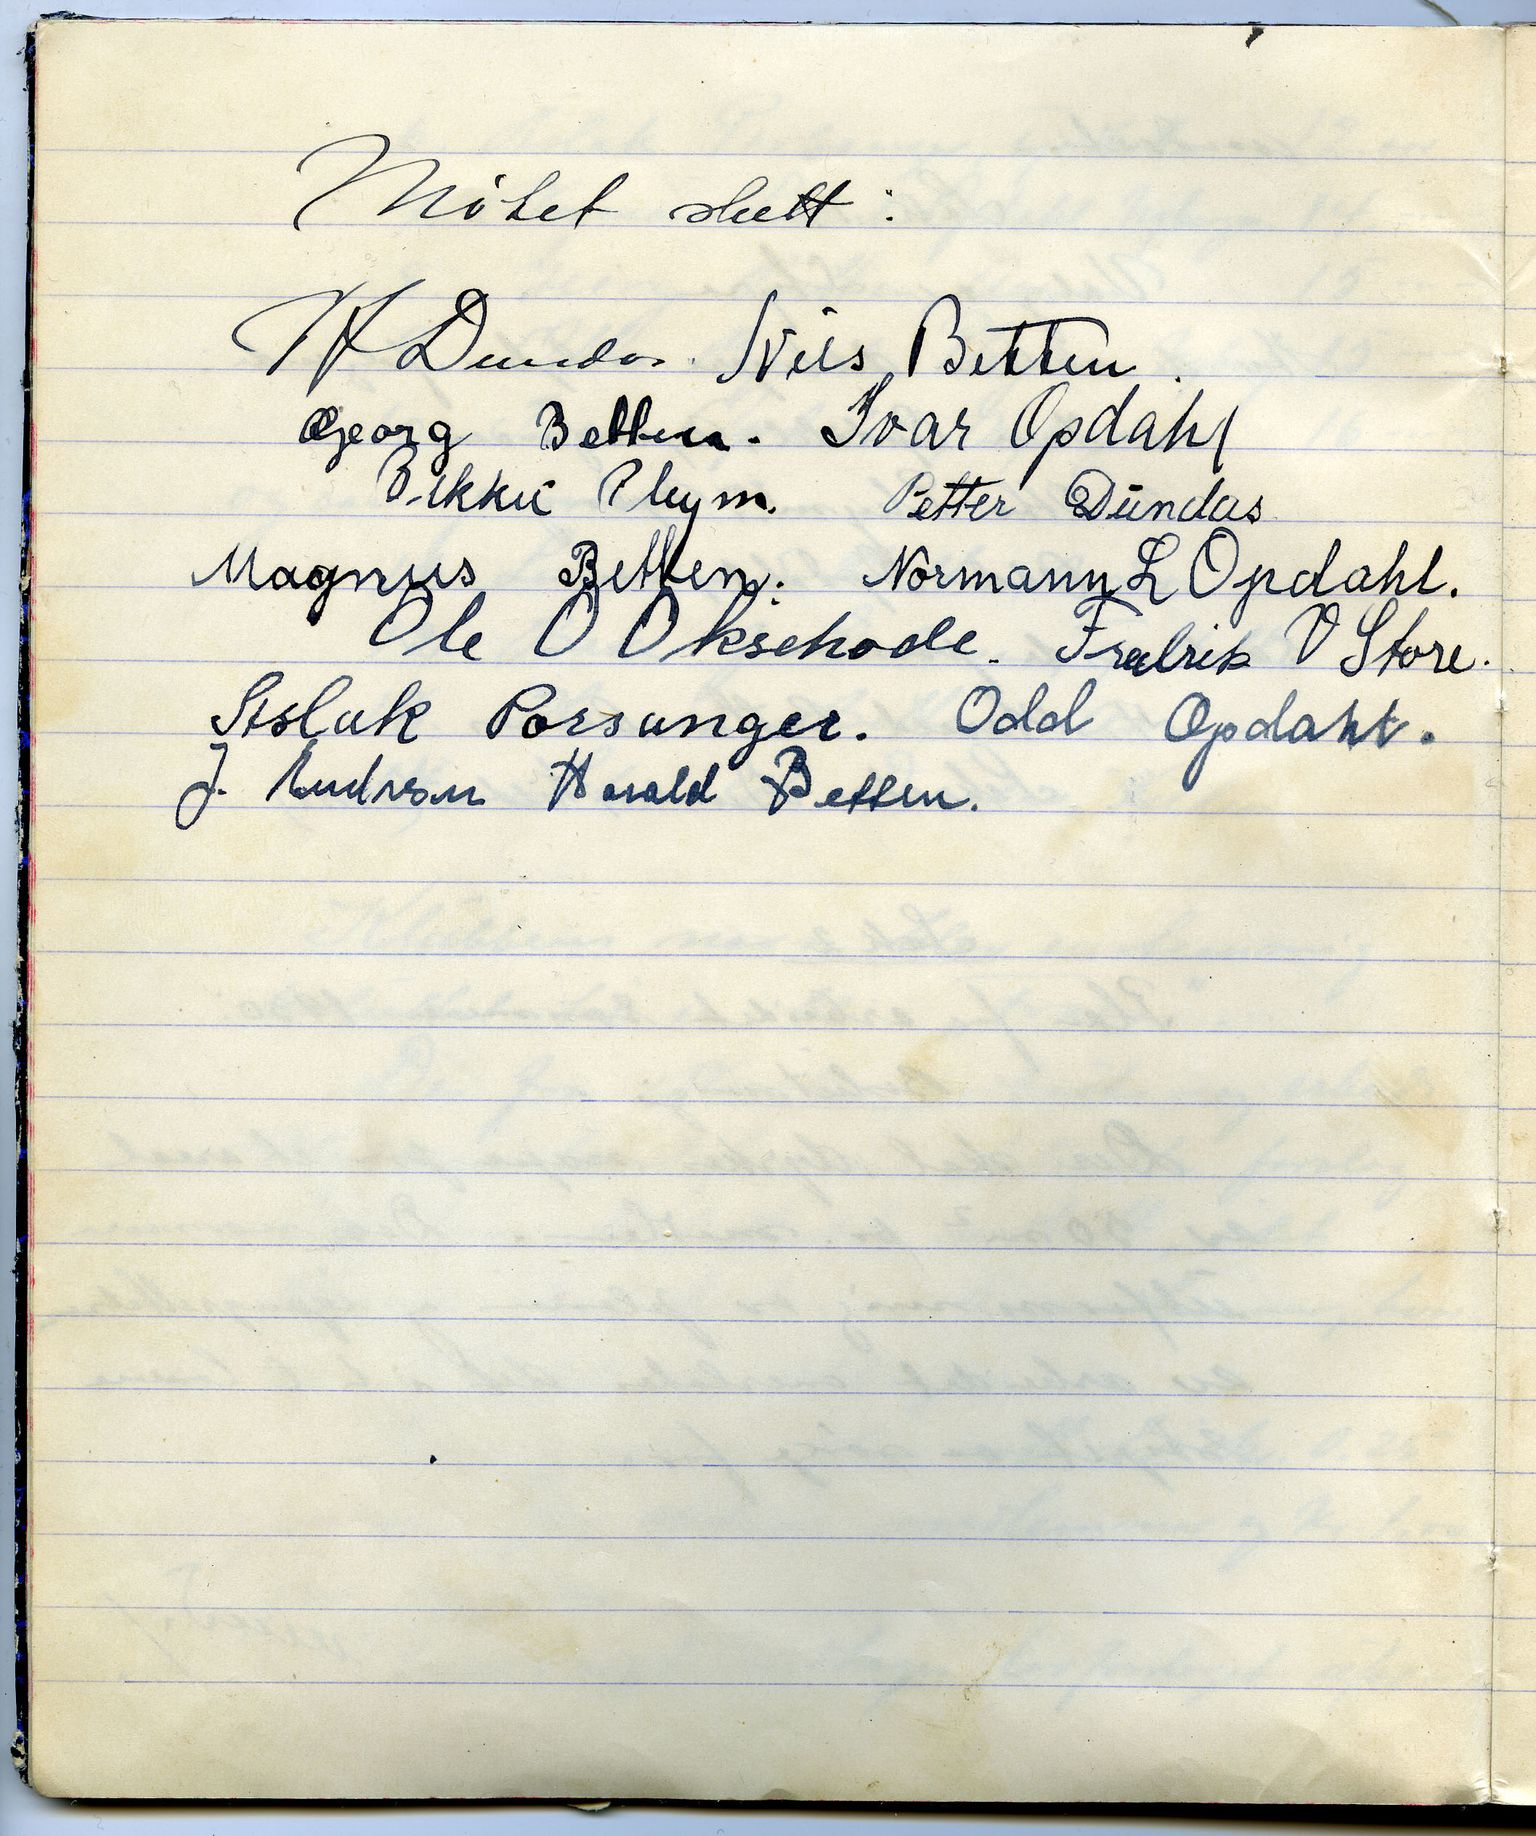 Mötet slutt:
Dundas. Nils Betten.
Georg Betten. Ivar Opdahl
Pikku Petter Dundas
Magnus Betten. Normann L Opdahl.
Ole O Okschode. Fredrik V Store.
Aslak Porsanger. Odd Opdahl.
J. Harald Betten.